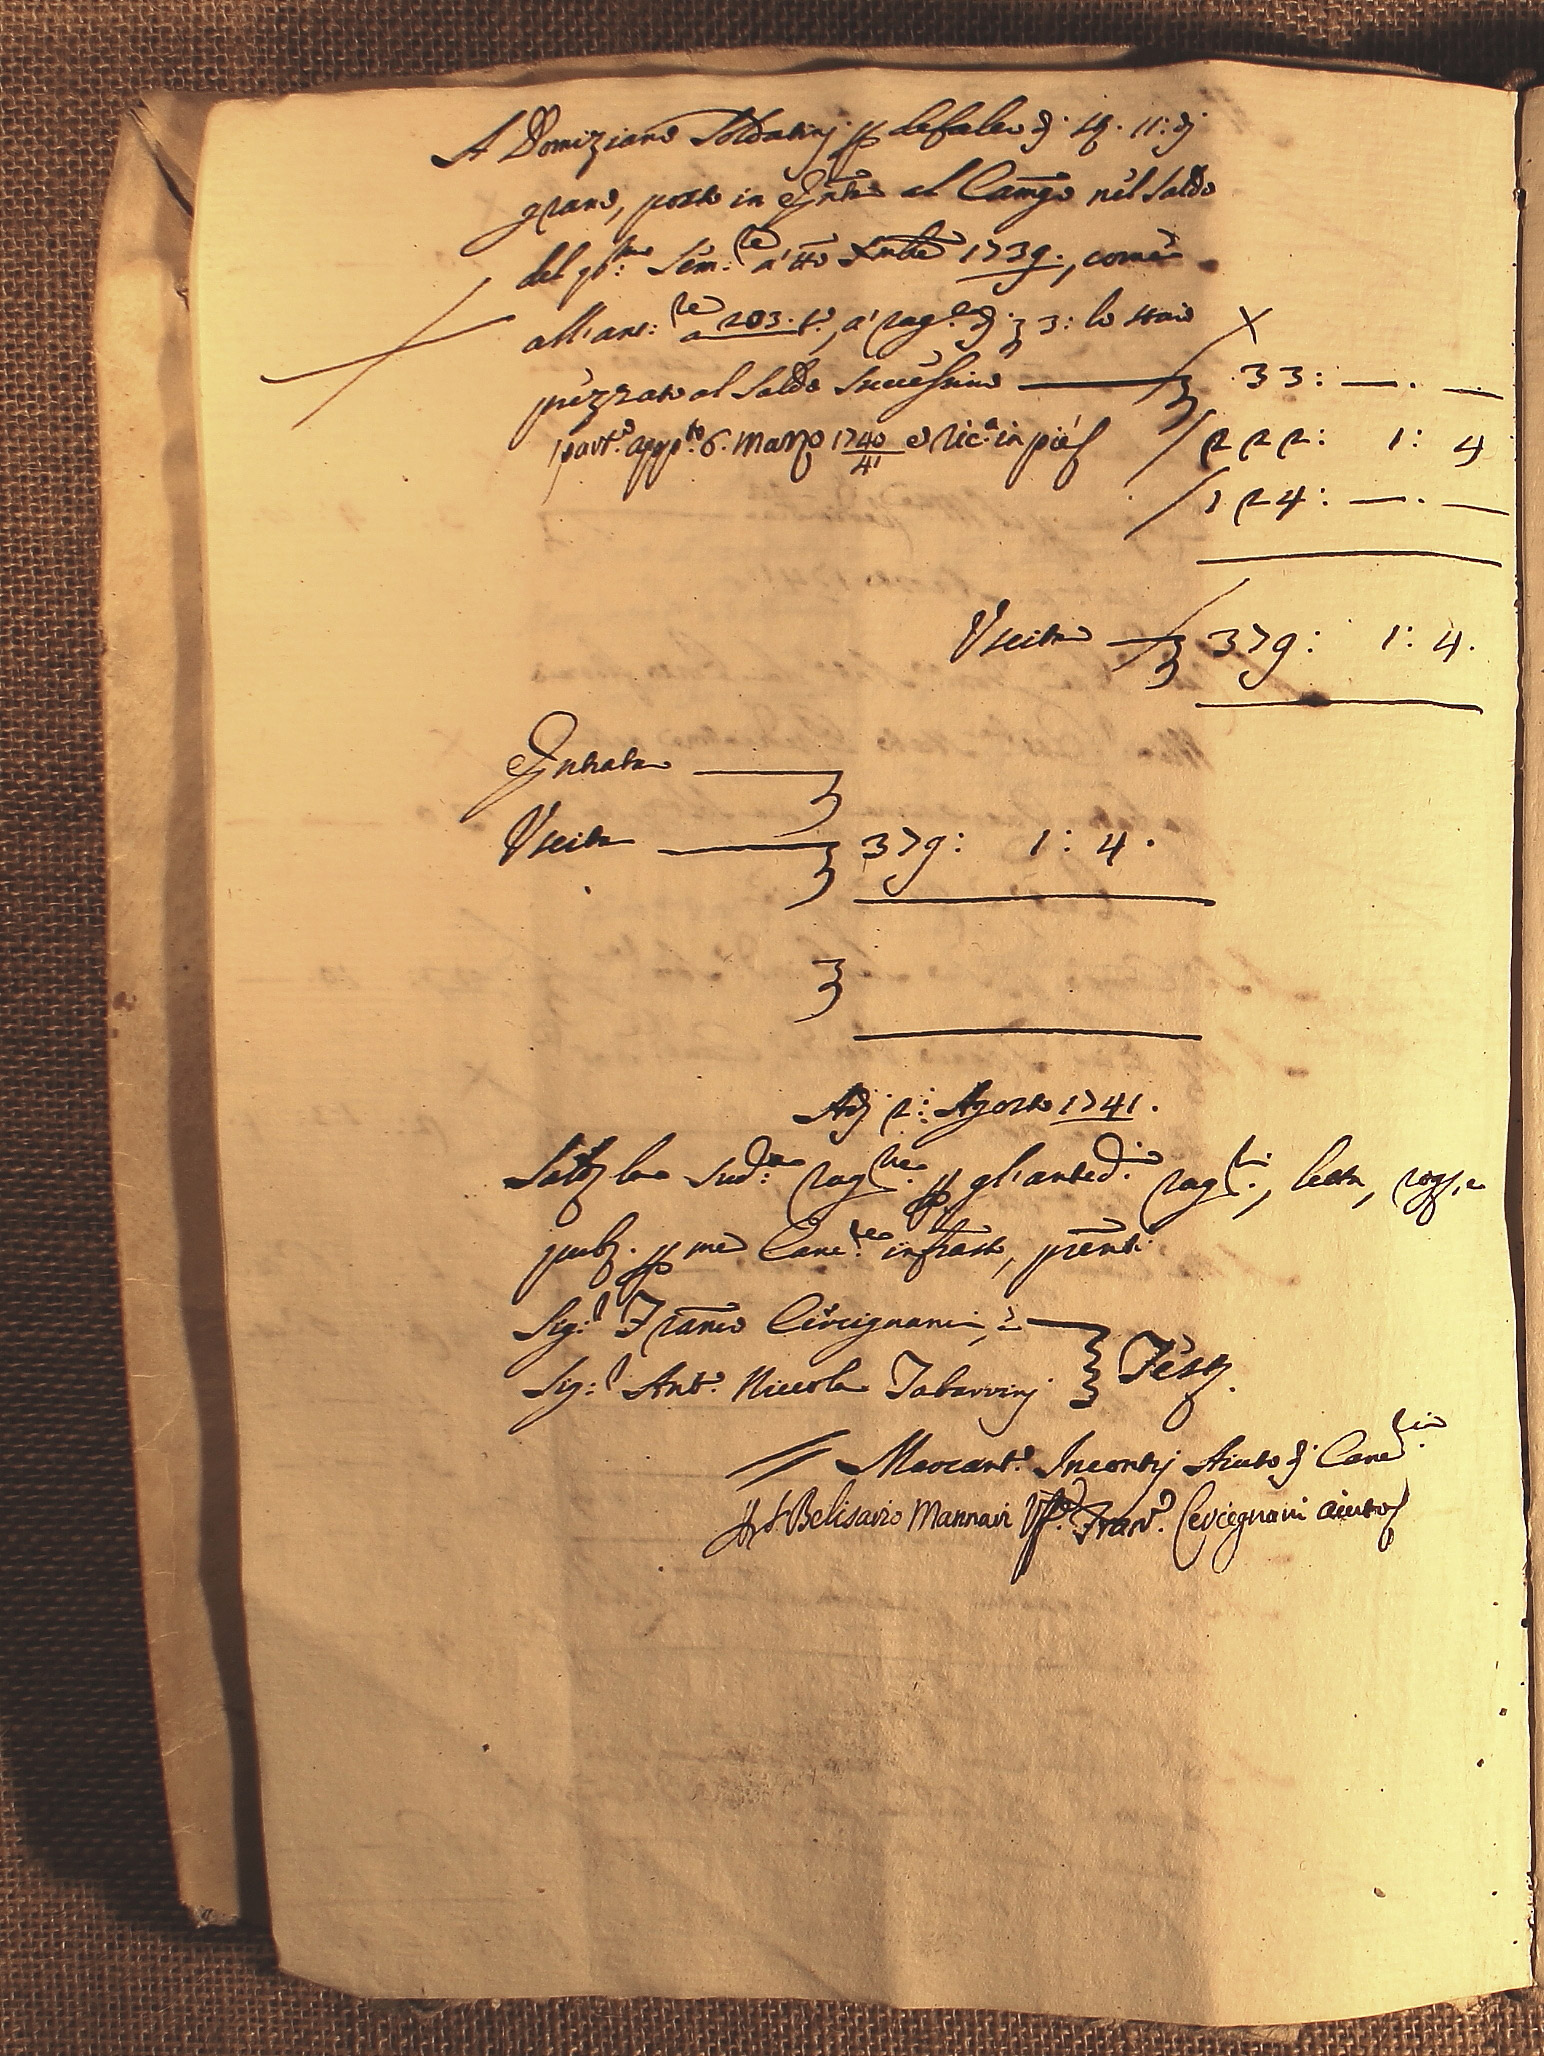 A Domiziano Soldatinj p defalco dj st. 11: dj
grano, posto in Entr.a al Campo nel Saldo
del p.mo Sem.re a' tto Xmbre 1739., come
all'ant.re a 203. t.o, a' rag.e dj 3: lo staio
prezzato al Saldo Successivo — 33: —. —
part.o app.to 6. Marzo 1740/41 e lic.a in piè
222: 1: 4
124: —. —
Uscita — 379: 1: 4.
Entrata —
Uscita — 379: 1: 4.
Adj 2: Agosto 1741.
Saldo la sud.a rag.ne p gl'anted.i rag.ri, letta, rog.
pub. p me Canc.re infrasto, presenti
Sig.r Franco Cercignani, e —
Sig.r Ant.o Niccola Tabarrinj } Test.
Marcant.o Incontrj Aiuto dj Canc.ria
Belisario Mannari Fran.o Cercignani aiuto